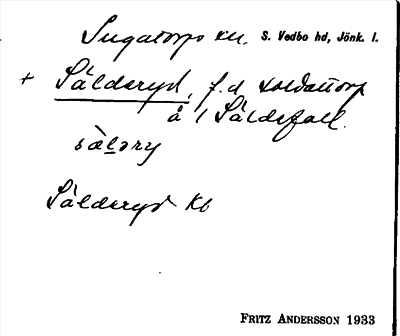 Sugatorps kn. S. Vedbo hd, Jönk. l.
+ Sälderyd, f.d. soldattorp
å 1 Säldefall.
sàləry
Sälderyd Kb
FRITZ ANDERSSON 1933